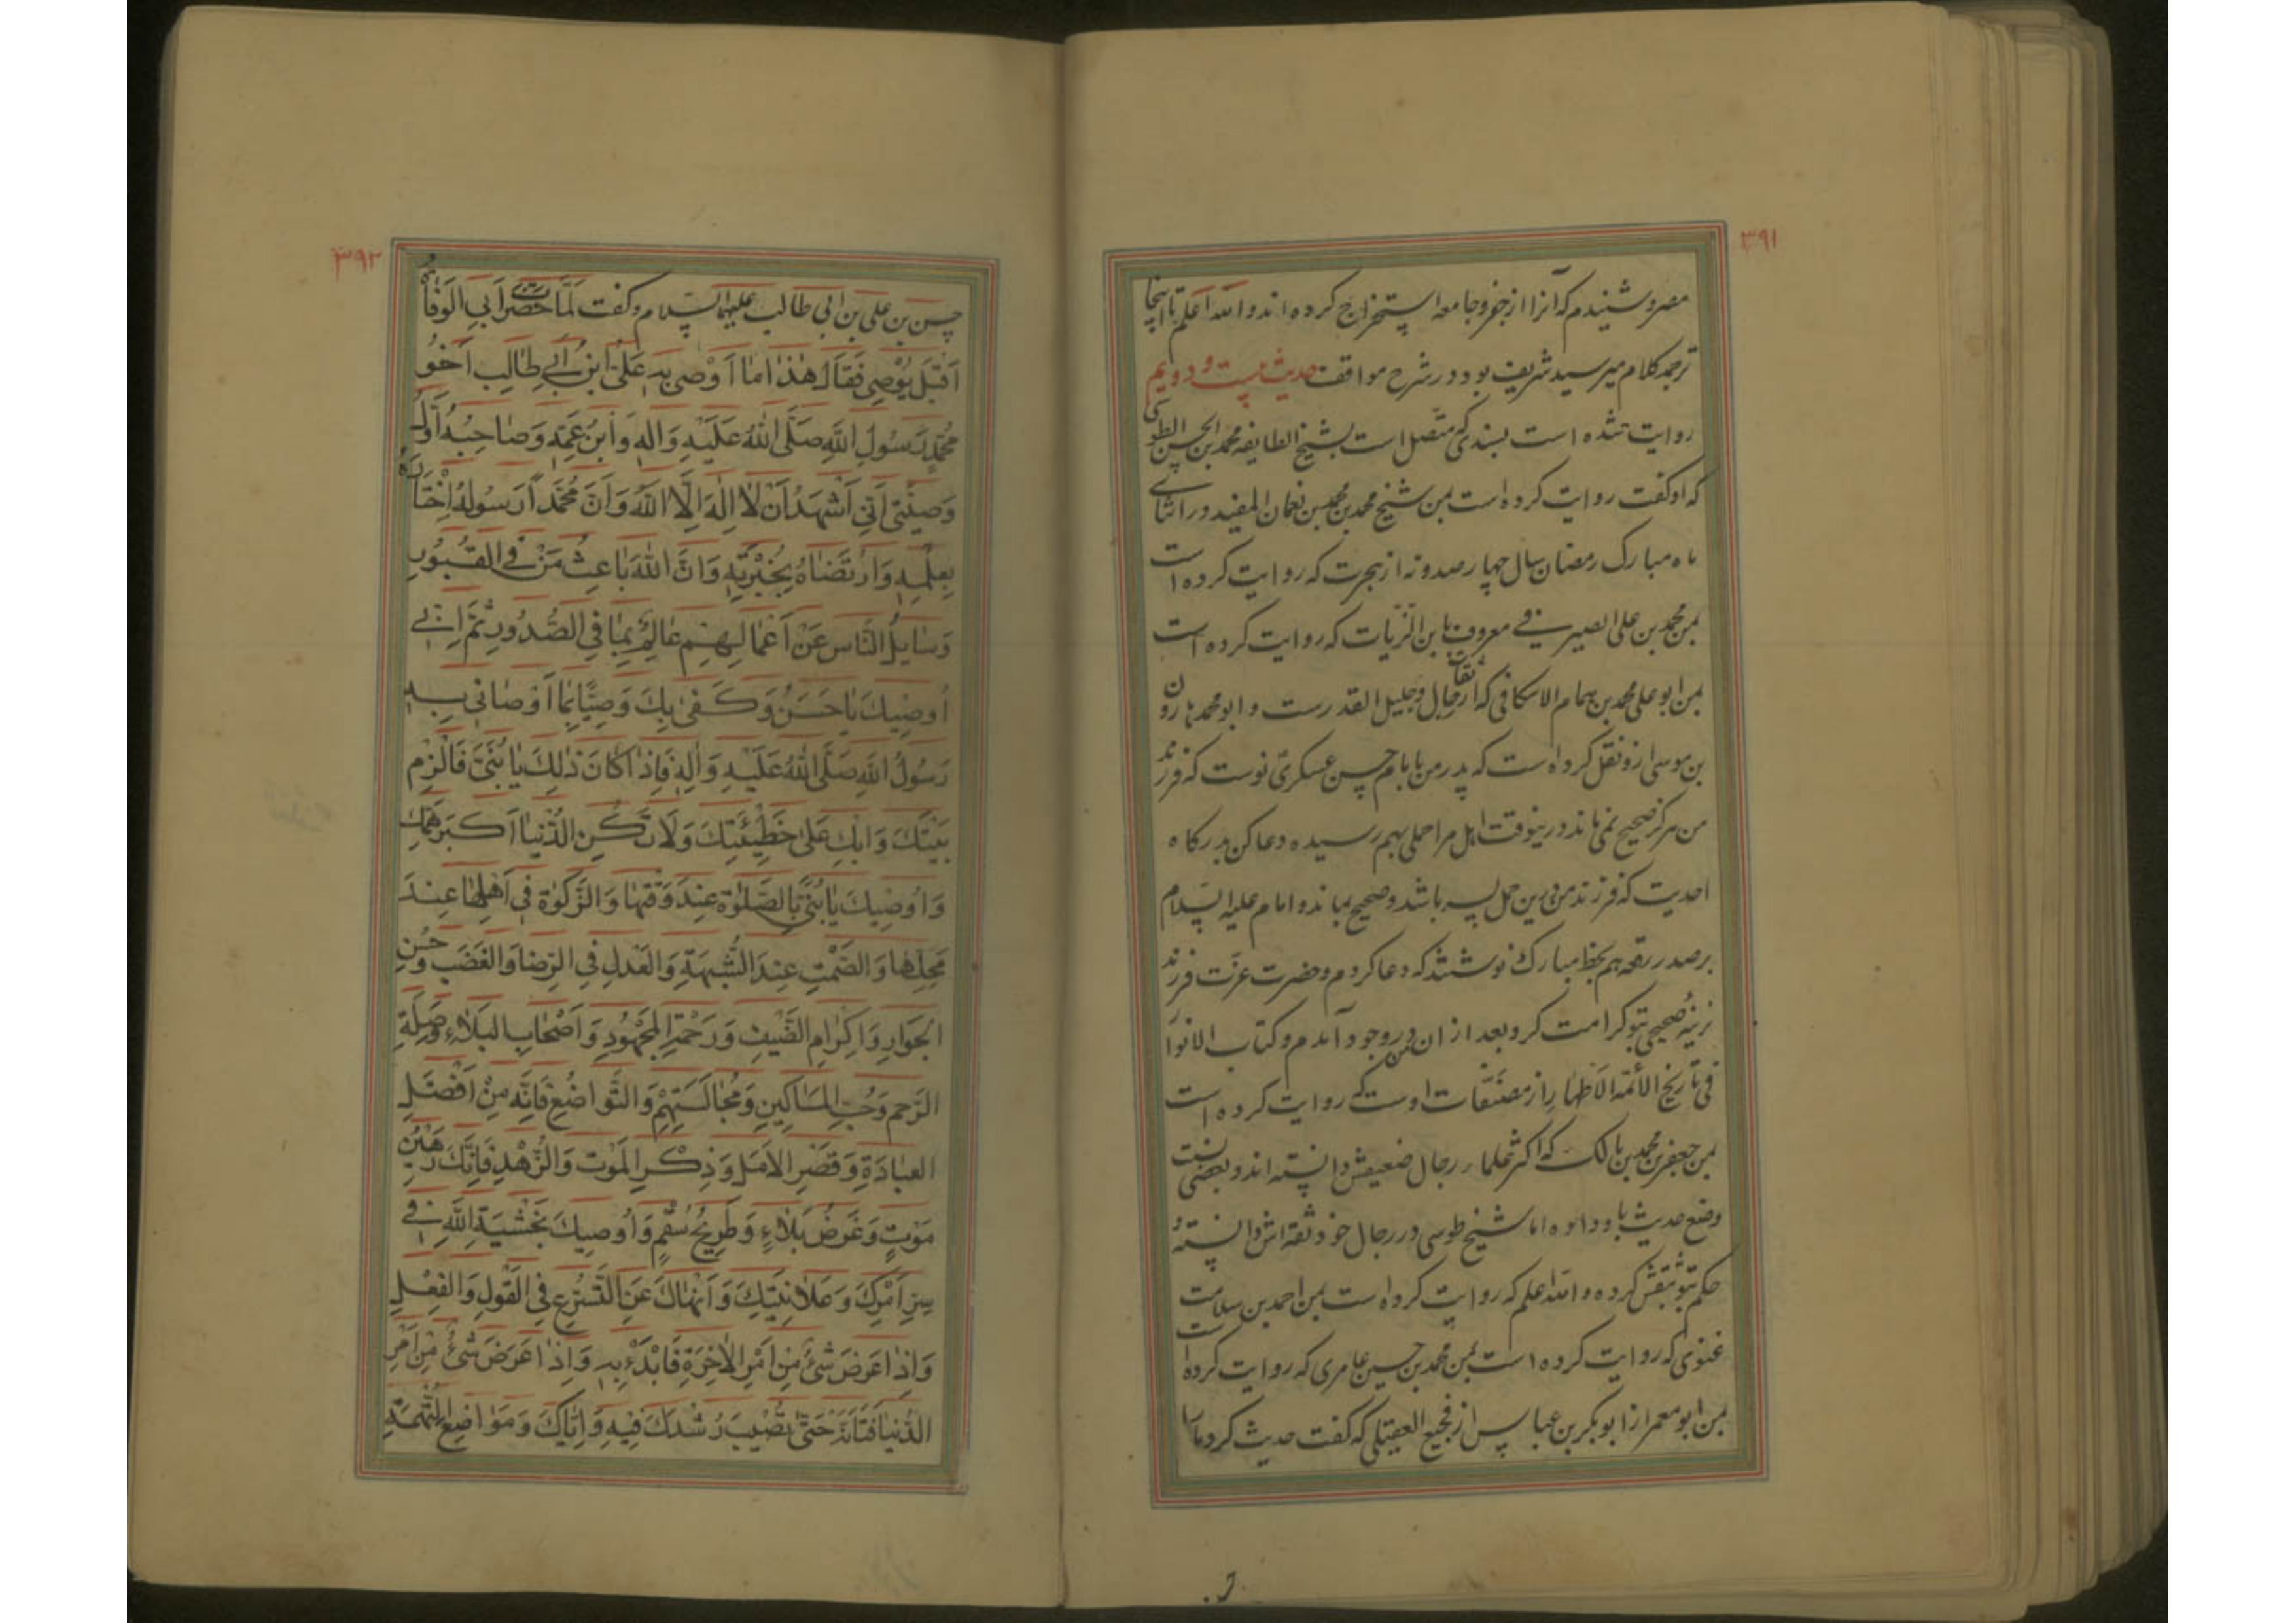 ۳۹۱
مصر و شنیدم که آنرا از جفر و جامعه استخراج کرده اند و الله اعلم تا اینجا
ترجمه کلام میر سید شریف بود در شرح مواقف حدیث بیست و دویم
روایت شده است بسندی که متصل است بشیخ الطایفه محمد بن الحسن الطوسی
که او گفت روایت کرده است بمن شیخ محمد بن محمد بن نعمان المفید در اثنای
ماه مبارک رمضان سال چهار صد و نه از هجرت که روایت کرده است
بمن محمد بن علی الصیرفی معروف بابن الزیات که روایت کرده است
بمن ابو علی محمد بن همام الاسکافی که از ثقات رجال و جلیل القدرست و ابو محمد هارون
بن موسی ازو نقل کرده است که پدر من بامام حسن عسکری نوشت که فرزند
من هرگز صحیح نمی ماند و درینوقت اهل مرا حملی بهم رسیده دعا کن بدرکاه
احدیت که فرزند من درین حمل پسر باشد و صحیح بماند و امام علیه السلام
بر صدر رقعه هم بخط مبارک نوشتند که دعا کردم و حضرت عزت فرزند
نرینه صحیحی بتو کرامت کرد و بعد از ان من بوجود آمدم و کتاب الانوار
فی تاریخ الأئمة الاطهار از مصنفات اوست که روایت کرده است
بمن جعفر بن محمد بن مالک که اکثر علماء رجال ضعیفش دانسته اند و بعضی نسبت
وضع حدیث باو داده اما شیخ طوسی در رجال خود ثقه اش دانسته و
حکم بتوثیقش کرده و الله اعلم که روایت کرده است بمن احمد بن سلامت
غنوی که روایت کرده است بمن محمد بن حسین عامری که روایت کرده است
بمن ابو معمر از ابو بکر بن عیاش از فجیع العقیلی که گفت حدیث کرد ما را
۳۹۲
حسن بن علی بن ابی طالب علیهما السلام و گفت لَمَّا حَضَرَتْ اَبِی الوَفٰاةُ
اَقْبَلَ یُوْصِی فَقٰالَ هٰذٰا مٰا اَوْصیٰ بِهِ عَلِیُّ ابنُ اَبی طٰالِبٍ اَخُو
مُحَمَّدٍ رَسُولِ اللّٰهِ صَلَّی اللّٰهُ عَلَیْهِ وَاٰلِهِ وَابنُ عَمِّهِ وَصٰاحِبُهُ اَوَّلُ
وَصِیَّتی اَنّی اَشْهَدُ اَنْ لٰا اِلٰهَ اِلَّا اللّٰهُ وَاَنَّ مُحَمَّداً رَسُولُهُ اِخْتٰارَهُ
بِعِلْمِهِ وَارْتَضٰاهُ بِخِیْرَتِهِ وَاَنَّ اللّٰهَ بٰاعِثُ مَنْ فِی القُبُورِ
وَسٰایِلُ النَّاسِ عَنْ اَعْمٰالِهِمْ عٰالِمٌ بِمٰا فِی الصُّدُورِ ثُمَّ اِنّی
اُوصِیكَ یٰا حَسَنُ وَكَفیٰ بِكَ وَصِیًّا بِمٰا اَوْصٰانی بِهِ
رَسُولُ اللّٰهِ صَلَّی اللّٰهُ عَلَیْهِ وَاٰلِهِ فَاِذٰا كٰانَ ذٰلِكَ یٰا بُنَیَّ فَالْزِمْ
بَیْتَكَ وَابْكِ عَلیٰ خَطِیْئَتِكَ وَلَا تَكُنِ الدُّنْیٰا اَكْبَرَ هَمِّكَ
وَاُوصِیكَ یٰا بُنَیَّ بِالصَّلوٰةِ عِنْدَ وَقْتِهٰا وَالزَّكوٰةِ فِی اَهْلِهٰا عِنْدَ
مَحِلِّهٰا وَالصَّمْتِ عِنْدَ الشُّبْهَةِ وَالعَدْلِ فِی الرِّضٰا وَالغَضَبِ وَحُسْنِ
الجَوٰارِ وَاِكْرٰامِ الضَّیْفِ وَرَحْمَةِ المَجْهُودِ وَاَصْحٰابِ البَلٰاءِ وَصِلَةِ
الرَّحِمِ وَحُبِّ المَسٰاكِینِ وَمُجٰالَسَتِهِمْ وَالتَّوٰاضُعِ فَاِنَّهُ مِنْ اَفْضَلِ
العِبٰادَةِ وَقَصْرِ الاَمَلِ وَذِكْرِ المَوْتِ وَالزُّهْدِ فَاِنَّكَ رَهِیْنُ
مَوْتٍ وَغَرَضُ بَلٰاءٍ وَطَرِیحُ سُقْمٍ وَاُوصِیكَ بِخَشْیَةِ اللّٰهِ فِی
سِرِّ اَمْرِكَ وَعَلٰانِیَتِكَ وَاَنْهٰاكَ عَنِ التَّسَرُّعِ فِی القَوْلِ وَالفِعْلِ
وَاِذٰا عَرَضَ شَیْءٌ مِنْ اَمْرِ الاٰخِرَةِ فَابْدَءْ بِهِ وَاِذٰا عَرَضَ شَیْءٌ مِنْ اَمْرِ
الدُّنْیٰا فَتَاَنَّهُ حَتّیٰ تُصِیبَ رُشْدَكَ فِیهِ وَاِیّٰاكَ وَمَوٰاضِعَ التُّهَمَةِ